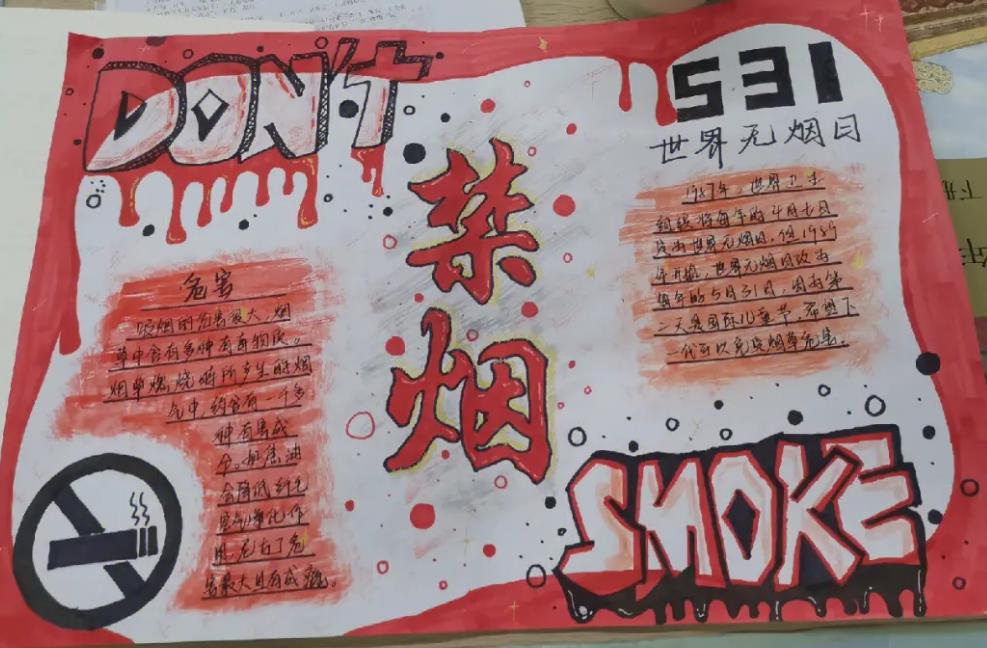 DON'T
禁烟
531
世界无烟日
1987年，世界卫生
组织将每年的4月七日
定为世界无烟日，但1989
年开始，世界无烟日改为
每年的5月31日，因为第
二天是国际儿童节，希望下
一代可以免受烟草危害。
危害
吸烟的危害很大，烟
草中含有多种有毒物质。
烟草燃烧时所产生的烟
气中，约含有一千多
种有害成
分。如焦油
会降低
净化作
用，尼古丁危
害最大且有成瘾。
SMOKE